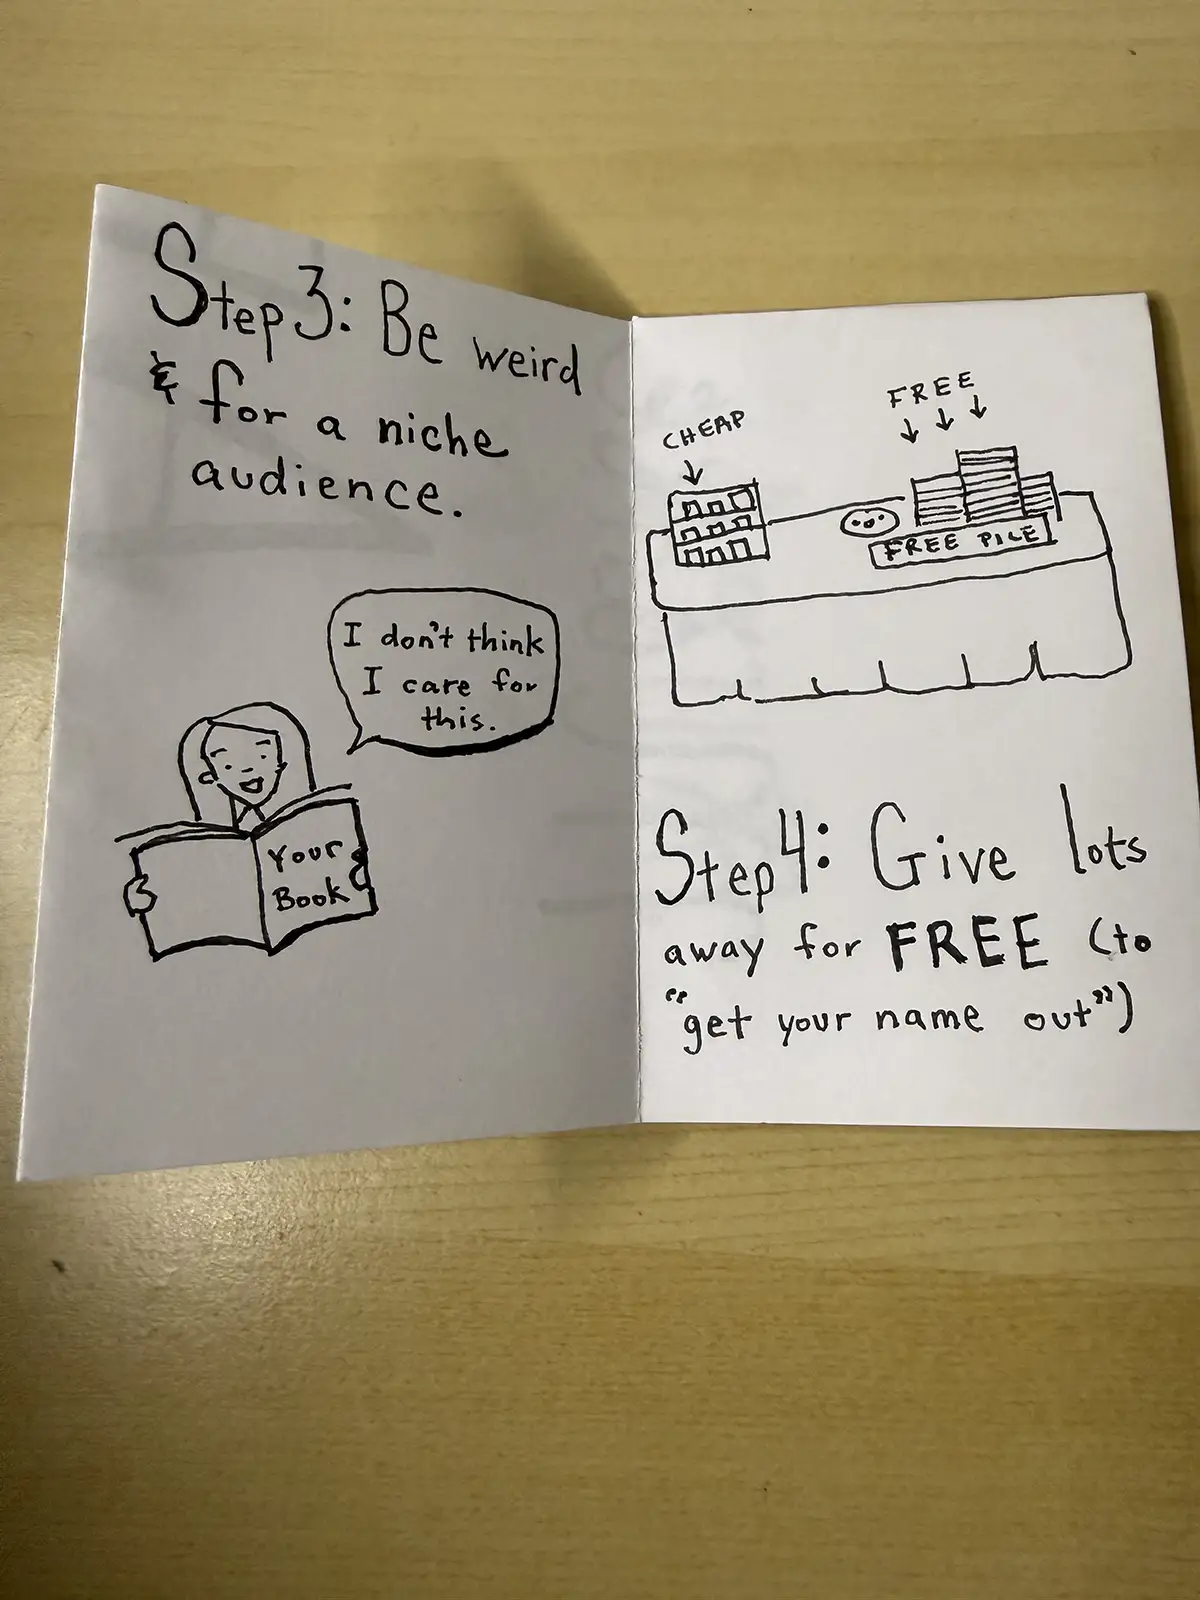 Step 3: Be weird
& for a niche
audience.
I don't think
I care for
this.
Your
Book
CHEAP
FREE
FREE PILE
Step 4: Give lots
away for FREE (to
"get your name out")